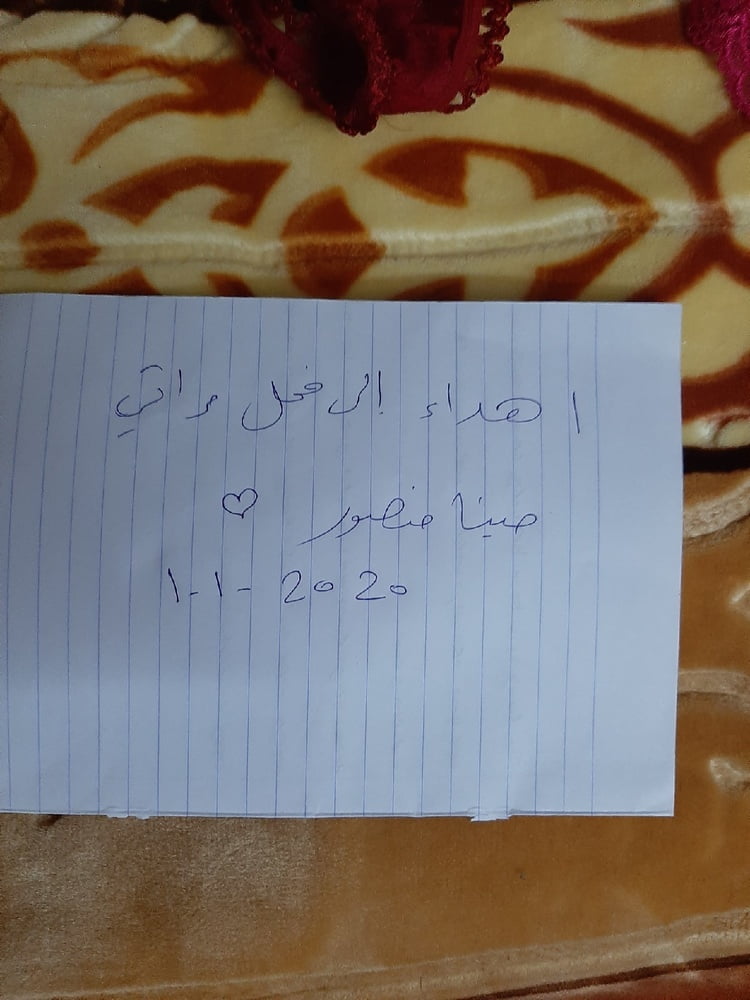 اهداء إلى فحل مراتي
مينا منصور ♡
1-1-2020